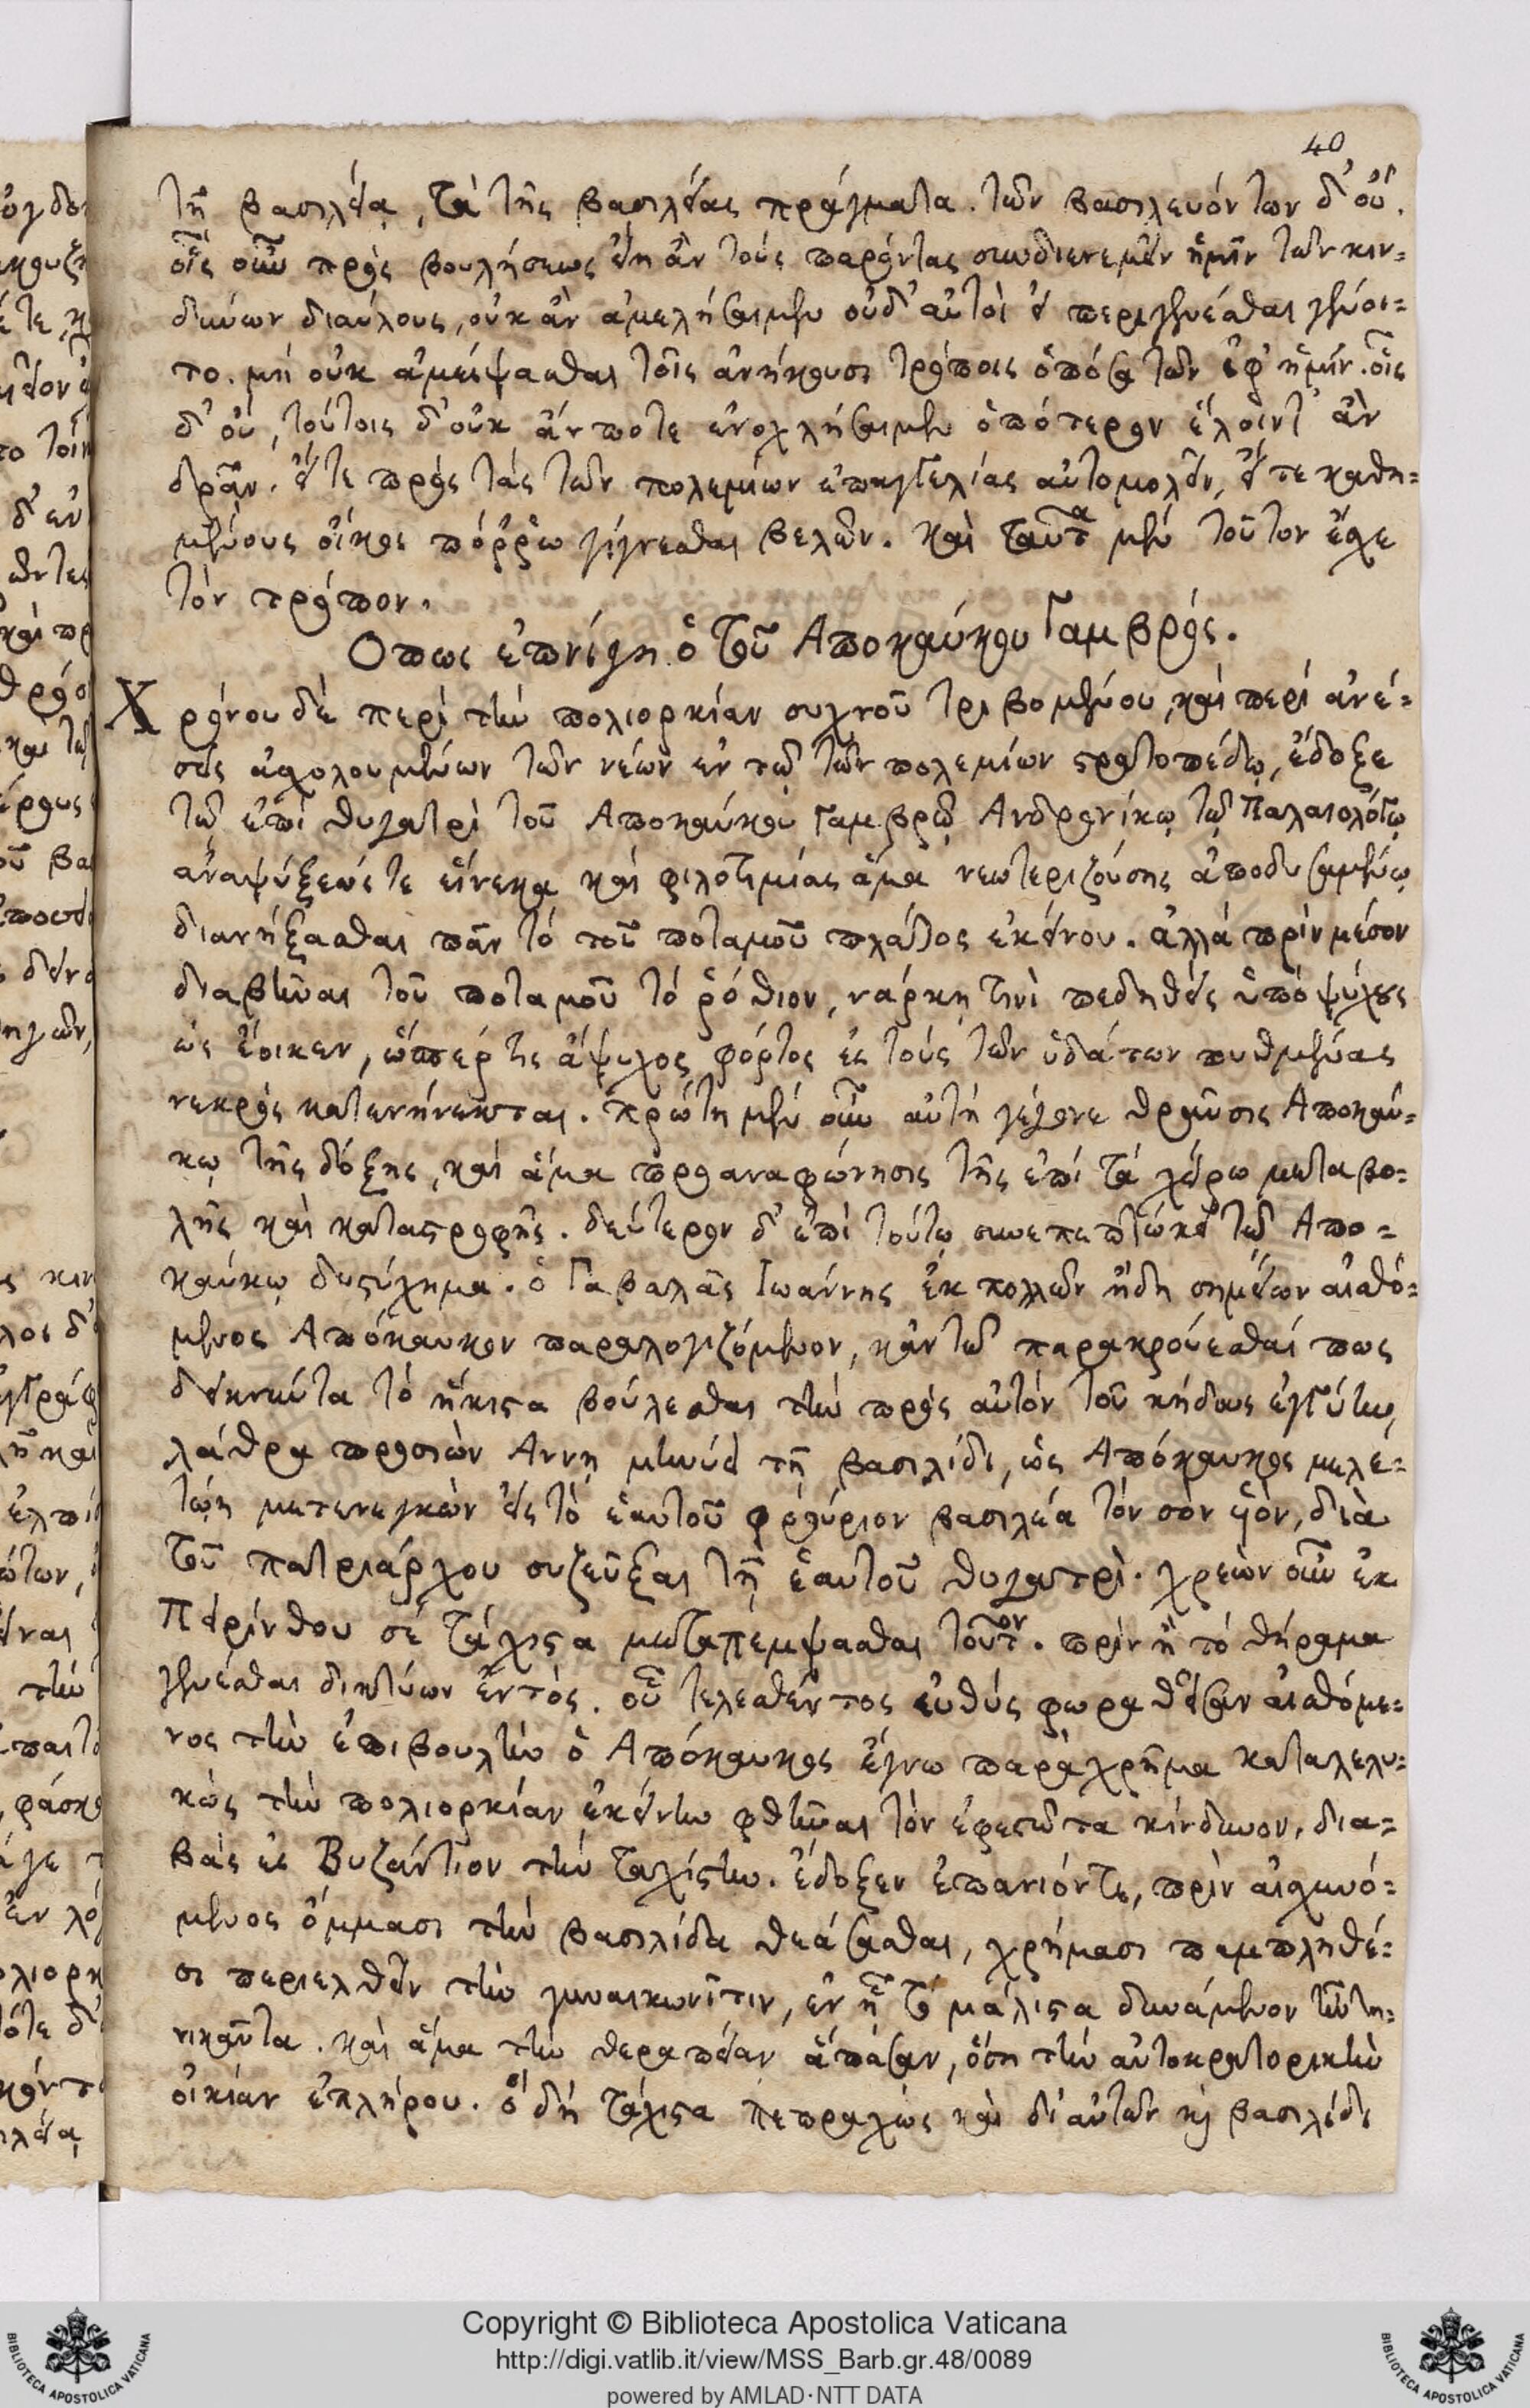 40
τῇ βασιλεία, τὰ τῆς βασιλείας πράγματα. τῶν βασιλευόντων δ' οὔ.
οἷς οὖν πρὸς βουλήσεως εἴη ἂν τοὺς παρόντας συνδιενεμεῖν ἡμῖν τῶν κιν=
δύνων διαύλους, οὐκ ἂν ἀμελήσαιμεν οὐδ' αὐτοὶ εἰ περιγενέσθαι γένοι=
το. μὴ οὐκ ἀμείψασθαι τοῖς ἀνήκουσι τρόποις ὁπόσα τῶν ἐφ' ἡμῖν. οἷς
δ' οὐ, τούτοις δ' οὐκ ἄν ποτε ἐνοχλήσαιμεν ὁπότερον ἕλοιντ' ἂν
δρᾶν. εἴτε πρὸς τὰς τῶν πολεμίων ἐπαγγελίας αὐτομολεῖν, εἴτε καθη=
μένους οἴκοι πόῤῥω γίγνεσθαι βελῶν. καὶ ταῦτα μὲν τοῦτον ἔσχε
τὸν τρόπον.
Οπως ἐπνίγη ὁ τοῦ Αποκαύκου Γαμβρός.
Χρόνου δὲ περὶ τὴν πολιορκίαν συχνοῦ τριβομένου, καὶ περὶ ἀνέ=
σεις ἀσχολουμένων τῶν νέων ἐν τῷ τῶν πολεμίων στρατοπέδῳ, ἔδοξε
τῷ ἐπὶ θυγατρὶ τοῦ Αποκαύκου γαμβρῷ Ανδρονίκῳ τῷ Παλαιολόγῳ
ἀναψύξεώς τε εἵνεκα καὶ φιλοτιμίας ἅμα νεωτεριζούσης ἀποδυσαμένῳ
διανήξασθαι πᾶν τὸ τοῦ ποταμοῦ πλάτος ἐκείνου. ἀλλὰ πρὶν μέσον
διαβῆναι τοῦ ποταμοῦ τὸ ῥόθιον, νάρκῃ τινὶ πεδηθεὶς ὑπὸ ψύχους
ὡς ἔοικεν, ὥσπερ τις ἄψυχος φόρτος ἐς τοὺς τῶν ὑδάτων πυθμένας
νεκρὸς κατενήνεκται. πρώτη μὲν οὖν αὐτὴ γέγονε θραῦσις Αποκαύ=
κῳ τῆς δόξης, καὶ ἅμα προαναφώνησις τῆς ἐπὶ τὰ χείρω μεταβο=
λῆς καὶ καταστροφῆς. δεύτερον δ' ἐπὶ τούτῳ συνεπεπτώκει τῷ Απο=
καύκῳ δυστύχημα. ὁ Γαβαλᾶς Ιωάννης ἐκ πολλῶν ἤδη σημείων αἰσθό=
μενος Απόκαυκον παραλογιζόμενον, κἂν τῷ παρακρούεσθαί πως
δεικνύντα τὸ ἥκιστα βούλεσθαι τὴν πρὸς αὐτὸν τοῦ κήδους ἐγγύην,
λάθρα προσιὼν Αννῃ μηνύει τῇ βασιλίδι, ὡς Απόκαυκος μελε=
τῴη μετενεγκὼν εἰς τὸ ἑαυτοῦ φρούριον βασιλέα τὸν σὸν υἱὸν, διὰ
τοῦ πατριάρχου συζεῦξαι τῇ ἑαυτοῦ θυγατρί. χρεὼν οὖν ἐκ
Πειρίνθου σὲ τάχιστα μεταπέμψασθαι τοῦτον. πρὶν ἢ τὸ θήραμα
γενέσθαι δικτύων ἐντός. οὗ τελεσθέντος εὐθὺς φωραθεῖσαν αἰσθόμε=
νος τὴν ἐπιβουλὴν ὁ Απόκαυκος ἔγνω παραχρῆμα καταλελυ=
κὼς τὴν πολιορκίαν ἐκείνην φθῆναι τὸν ἐφεστῶτα κίνδυνον, δια=
βὰς ἐς Βυζάντιον τὴν ταχίστην. ἔδοξεν ἐπανιόντι, πρὶν αἰσχυνό=
μενος ὄμμασι τὴν βασιλίδα θεάσασθαι, χρήμασι παμπληθέ=
σι περιελθεῖν τὴν γυναικωνῖτιν, ἐν ᾗ τὸ μάλιστα δυνάμενον τῶ τη=
νικαῦτα. καὶ ἅμα τὴν θεραπείαν ἅπασαν, ὅση τὴν αὐτοκρατορικὴν
οἰκίαν ἐπλήρου. ὃ δὴ τάχιστα πεπραχὼς καὶ δι' αὐτῶν κ βασιλίδι
Copyright © Biblioteca Apostolica Vaticana
http://digi.vatlib.it/view/MSS_Barb.gr.48/0089
powered by AMLAD·NTT DATA
BIBLIOTECA APOSTOLICA VATICANA
BIBLIOTECA APOSTOLICA VATICANA